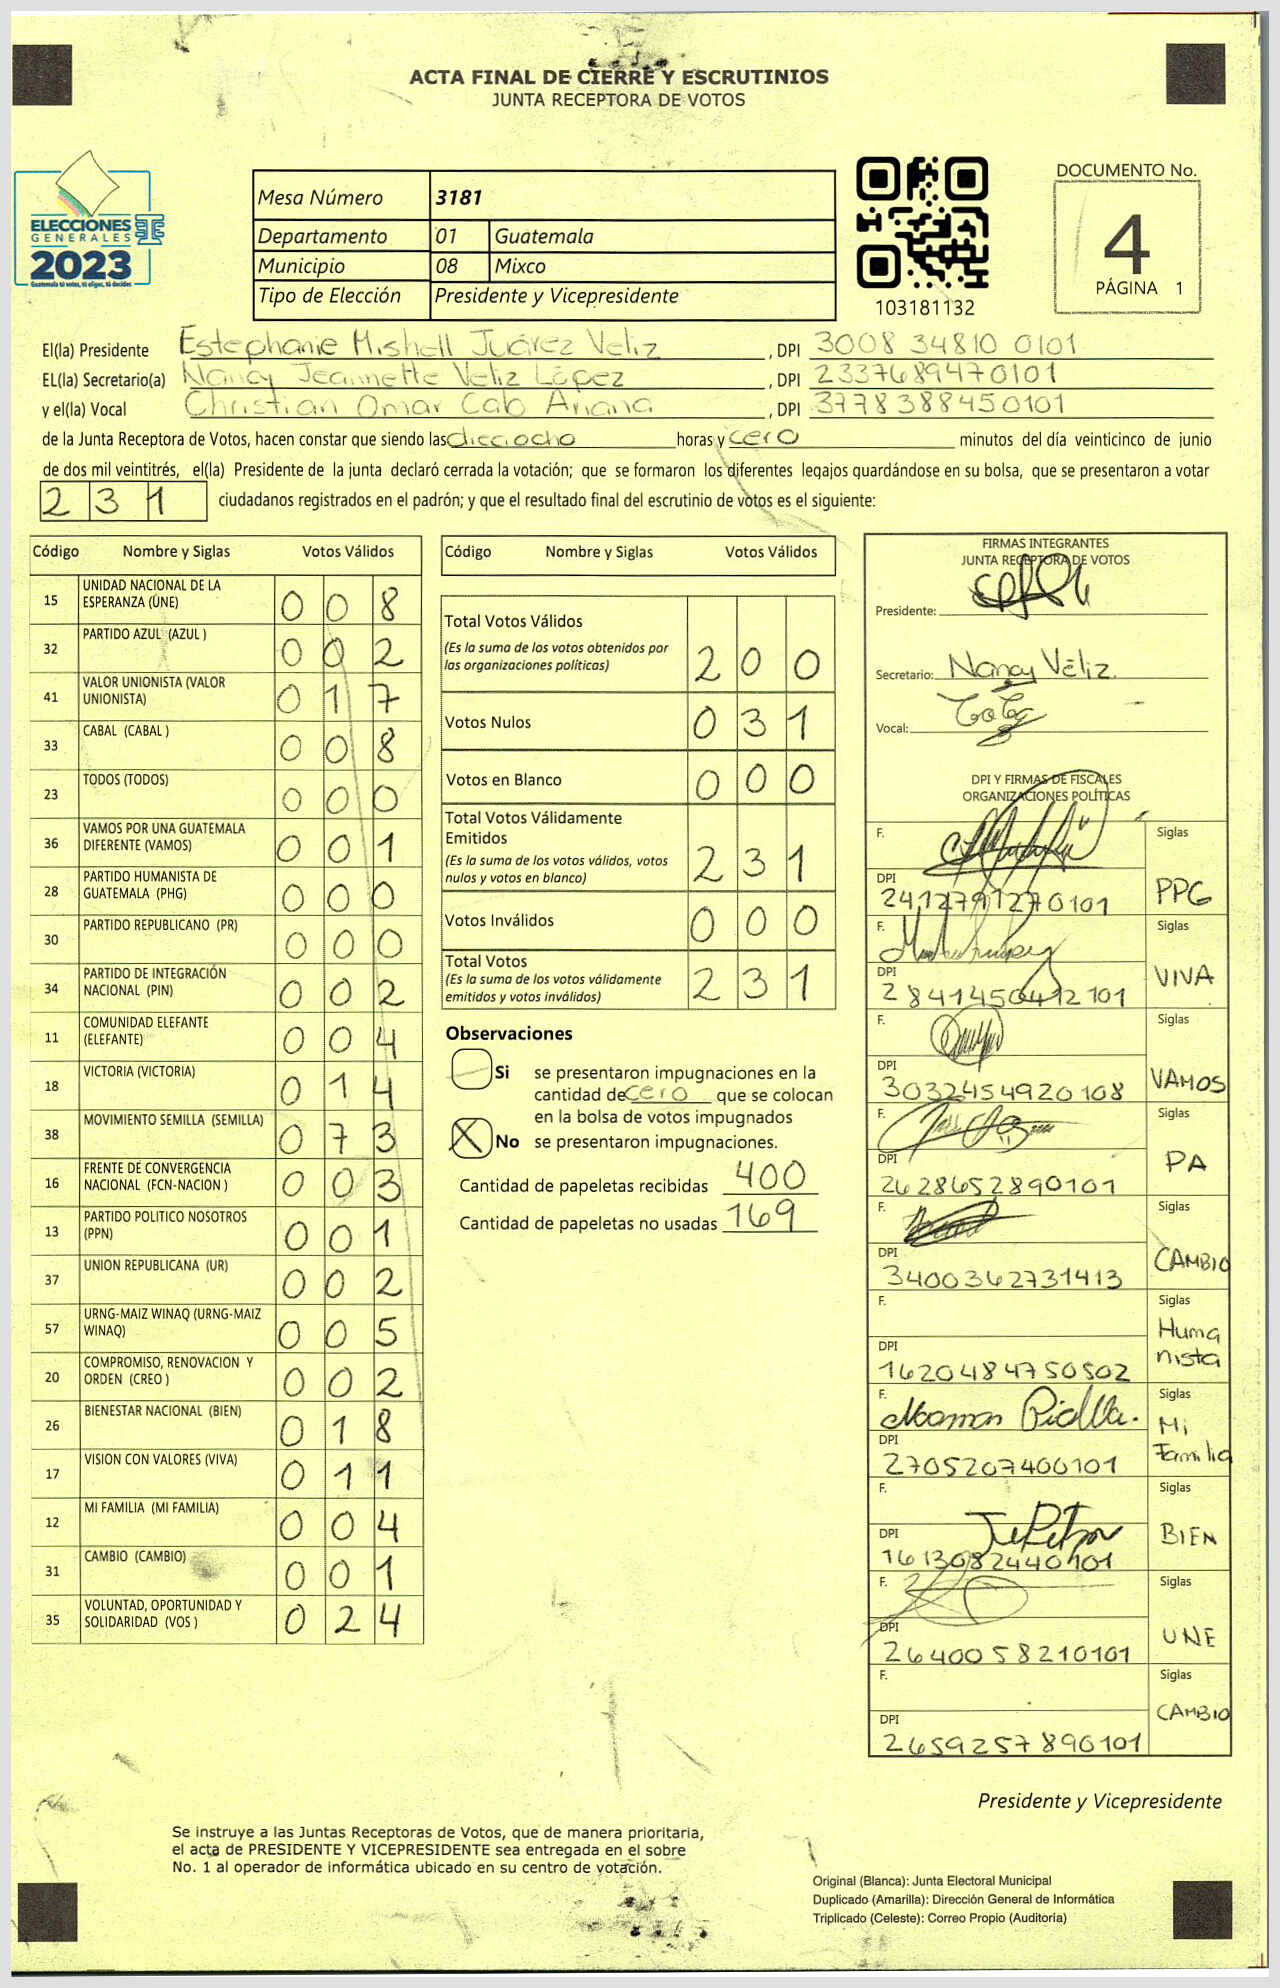 ACTA FINAL DE CIERRE Y ESCRUTINIOS
JUNTA RECEPTORA DE VOTOS
ELECCIONES
GENERALES
2023
Guatemala tú votas, tú eliges, tú decides
Mesa Número 3181
Departamento 01 Guatemala
Municipio 08 Mixco
Tipo de Elección Presidente y Vicepresidente
103181132
DOCUMENTO No.
4
PÁGINA 1
El(la) Presidente Estephanie Mishell Juárez Veliz, DPI 3008 34810 0101
EL(la) Secretario(a) Nancy Jeannette Veliz López, DPI 2337689470101
y el(la) Vocal Christian Omar Cab Ariana, DPI 3778388450101
de la Junta Receptora de Votos, hacen constar que siendo las dieciocho horas y cero minutos del día veinticinco de junio
de dos mil veintitrés, el(la) Presidente de la junta declaró cerrada la votación; que se formaron los diferentes legajos quardándose en su bolsa, que se presentaron a votar
231 ciudadanos registrados en el padrón; y que el resultado final del escrutinio de votos es el siguiente:
Código Nombre y Siglas Votos Válidos
15 UNIDAD NACIONAL DE LA ESPERANZA (UNE) 008
32 PARTIDO AZUL (AZUL ) 002
41 VALOR UNIONISTA (VALOR UNIONISTA) 017
33 CABAL (CABAL ) 008
23 TODOS (TODOS) 000
36 VAMOS POR UNA GUATEMALA DIFERENTE (VAMOS) 001
28 PARTIDO HUMANISTA DE GUATEMALA (PHG) 000
30 PARTIDO REPUBLICANO (PR) 000
34 PARTIDO DE INTEGRACIÓN NACIONAL (PIN) 002
11 COMUNIDAD ELEFANTE (ELEFANTE) 004
18 VICTORIA (VICTORIA) 014
38 MOVIMIENTO SEMILLA (SEMILLA) 073
16 FRENTE DE CONVERGENCIA NACIONAL (FCN-NACION ) 003
13 PARTIDO POLITICO NOSOTROS (PPN) 001
37 UNION REPUBLICANA (UR) 002
57 URNG-MAIZ WINAQ (URNG-MAIZ WINAQ) 005
20 COMPROMISO, RENOVACION Y ORDEN (CREO ) 002
26 BIENESTAR NACIONAL (BIEN) 018
17 VISION CON VALORES (VIVA) 011
12 MI FAMILIA (MI FAMILIA) 004
31 CAMBIO (CAMBIO) 001
35 VOLUNTAD, OPORTUNIDAD Y SOLIDARIDAD (VOS ) 024
Código Nombre y Siglas Votos Válidos
Total Votos Válidos
(Es la suma de los votos obtenidos por
las organizaciones políticas) 200
Votos Nulos 031
Votos en Blanco 000
Total Votos Válidamente
Emitidos
(Es la suma de los votos válidos, votos
nulos y votos en blanco) 231
Votos Inválidos 000
Total Votos
(Es la suma de los votos válidamente
emitidos y votos inválidos) 231
Observaciones
Si se presentaron impugnaciones en la
cantidad de cero que se colocan
en la bolsa de votos impugnados
X No se presentaron impugnaciones.
Cantidad de papeletas recibidas 400
Cantidad de papeletas no usadas 169
FIRMAS INTEGRANTES
JUNTA RECEPTORA DE VOTOS
Presidente:
Secretario: Nancy Véliz.
Vocal:
DPI Y FIRMAS DE FISCALES
ORGANIZACIONES POLÍTICAS
F. Siglas
DPI 2412791270101 PPG
F. Siglas
DPI 2841450412101 VIVA
F. Siglas
DPI 3032454920108 VAMOS
F. Siglas
DPI 2628652890101 PA
F. Siglas
DPI 3400362731413 CAMBIO
F. Siglas
DPI 1620484750502 Humanista
F. Siglas
DPI 2705207400101 Mi Familia
F. Siglas
DPI 1613082440101 BIEN
F. Siglas
DPI 2640058210101 UNE
F. Siglas
DPI 2659257890101 CAMBIO
Presidente y Vicepresidente
Se instruye a las Juntas Receptoras de Votos, que de manera prioritaria,
el acta de PRESIDENTE Y VICEPRESIDENTE sea entregada en el sobre
No. 1 al operador de informática ubicado en su centro de votación.
Original (Blanca): Junta Electoral Municipal
Duplicado (Amarilla): Dirección General de Informática
Triplicado (Celeste): Correo Propio (Auditoría)